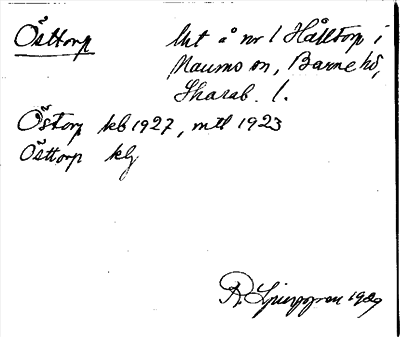 Östtorp
Lht å nr 1 Hålltorp i
Naums sn, Barne hd,
Skarab. l.
Östorp kb 1927, mtl 1923
Östtorp klj
R. Ljunggren 1929